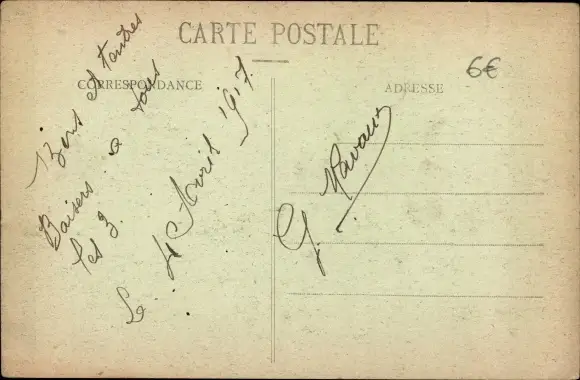 CARTE POSTALE
6€
CORRESPONDANCE
ADRESSE
Bons et tantres
Baisers a tous
les 3.
Le 4 Avril 1917.
G.